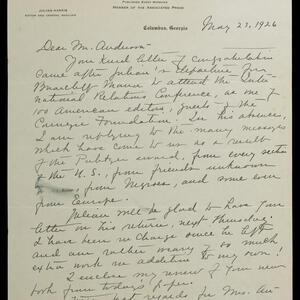 PUBLISHED EVERY MORNING
JULIAN HARRIS
EDITOR AND GENERAL MANAGER
MEMBER OF THE ASSOCIATED PRESS
Columbus, Georgia
May 23, 1926
Dear Mr. Anderson—
Your kind letter of congratulation
came after Julian's departure for
Briarcliff Manor to attend the Inter-
national Relations Conference, as one of
100 American editors, guests of the
Carnegie Foundation. In his absence,
I am replying to the many messages
which have come to us as a result
of the Pulitzer award, from every section
of the U.S., from friends unknown
from Negroes, and some even
from Europe.
Julian will be glad to have your
letter on his return, next
I have been in charge since he left
and am rather weary of so much
extra work in addition to my own!
I enclose my review of your new
book from today's paper.
best regards for Mrs. An-